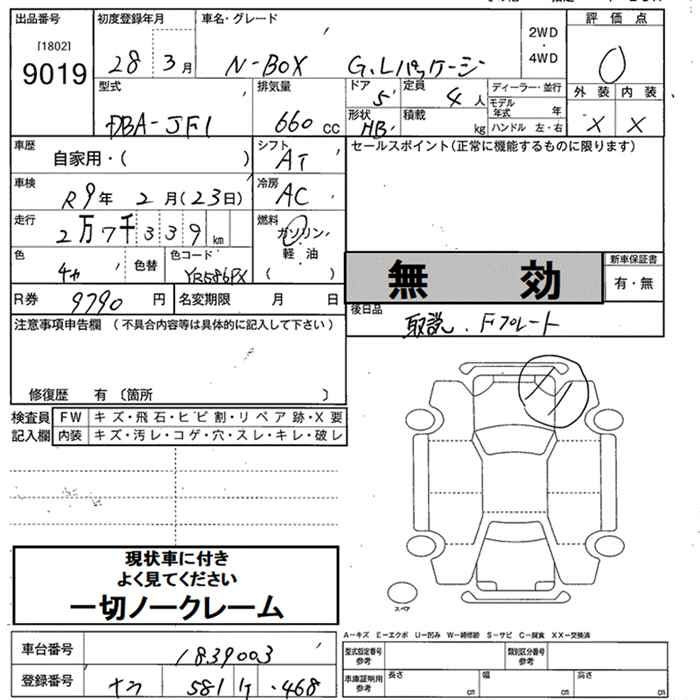 出品番号 初度登録年月 車名・グレード 評価点
[1802] 2WD
9019 28 3月 N-BOX G.Lパッケージ 4WD
型式 排気量 ドア 5 定員 4人 ディーラー・並行 外装 内装
モデル年式 年
DBA-JF1 660cc 形状 HB 積載 kg ハンドル 左・右 X X
車歴 シフト セールスポイント(正常に機能するものに限ります)
自家用・( ) AT
車検 冷房
R9年 2月(23日) AC
走行 燃料
2万7千339km ガソリン
軽油
色 色替 色コード ( )
YR586PX 無効 新車保証書
有・無
R券 9790円 名変期限 月 日 後日品
取説. Fプレート
注意事項申告欄 (不具合内容等は具体的に記入して下さい)
修復歴 有 〔箇所 〕
検査員 FW キズ・飛石・ヒビ割・リペア跡・X要
記入欄 内装 キズ・汚レ・コゲ・穴・スレ・キレ・破レ
現状車に付き
よく見てください
一切ノークレーム
スペア
A-キズ E-エクボ U-凹み W-補修跡 S-サビ C-腐食 XX-交換済
車台番号 1839003 型式指定番号 参考 類別区分番号 参考
登録番号 581 ・468 車庫証明用 参考 長さ cm 幅 cm 高さ cm